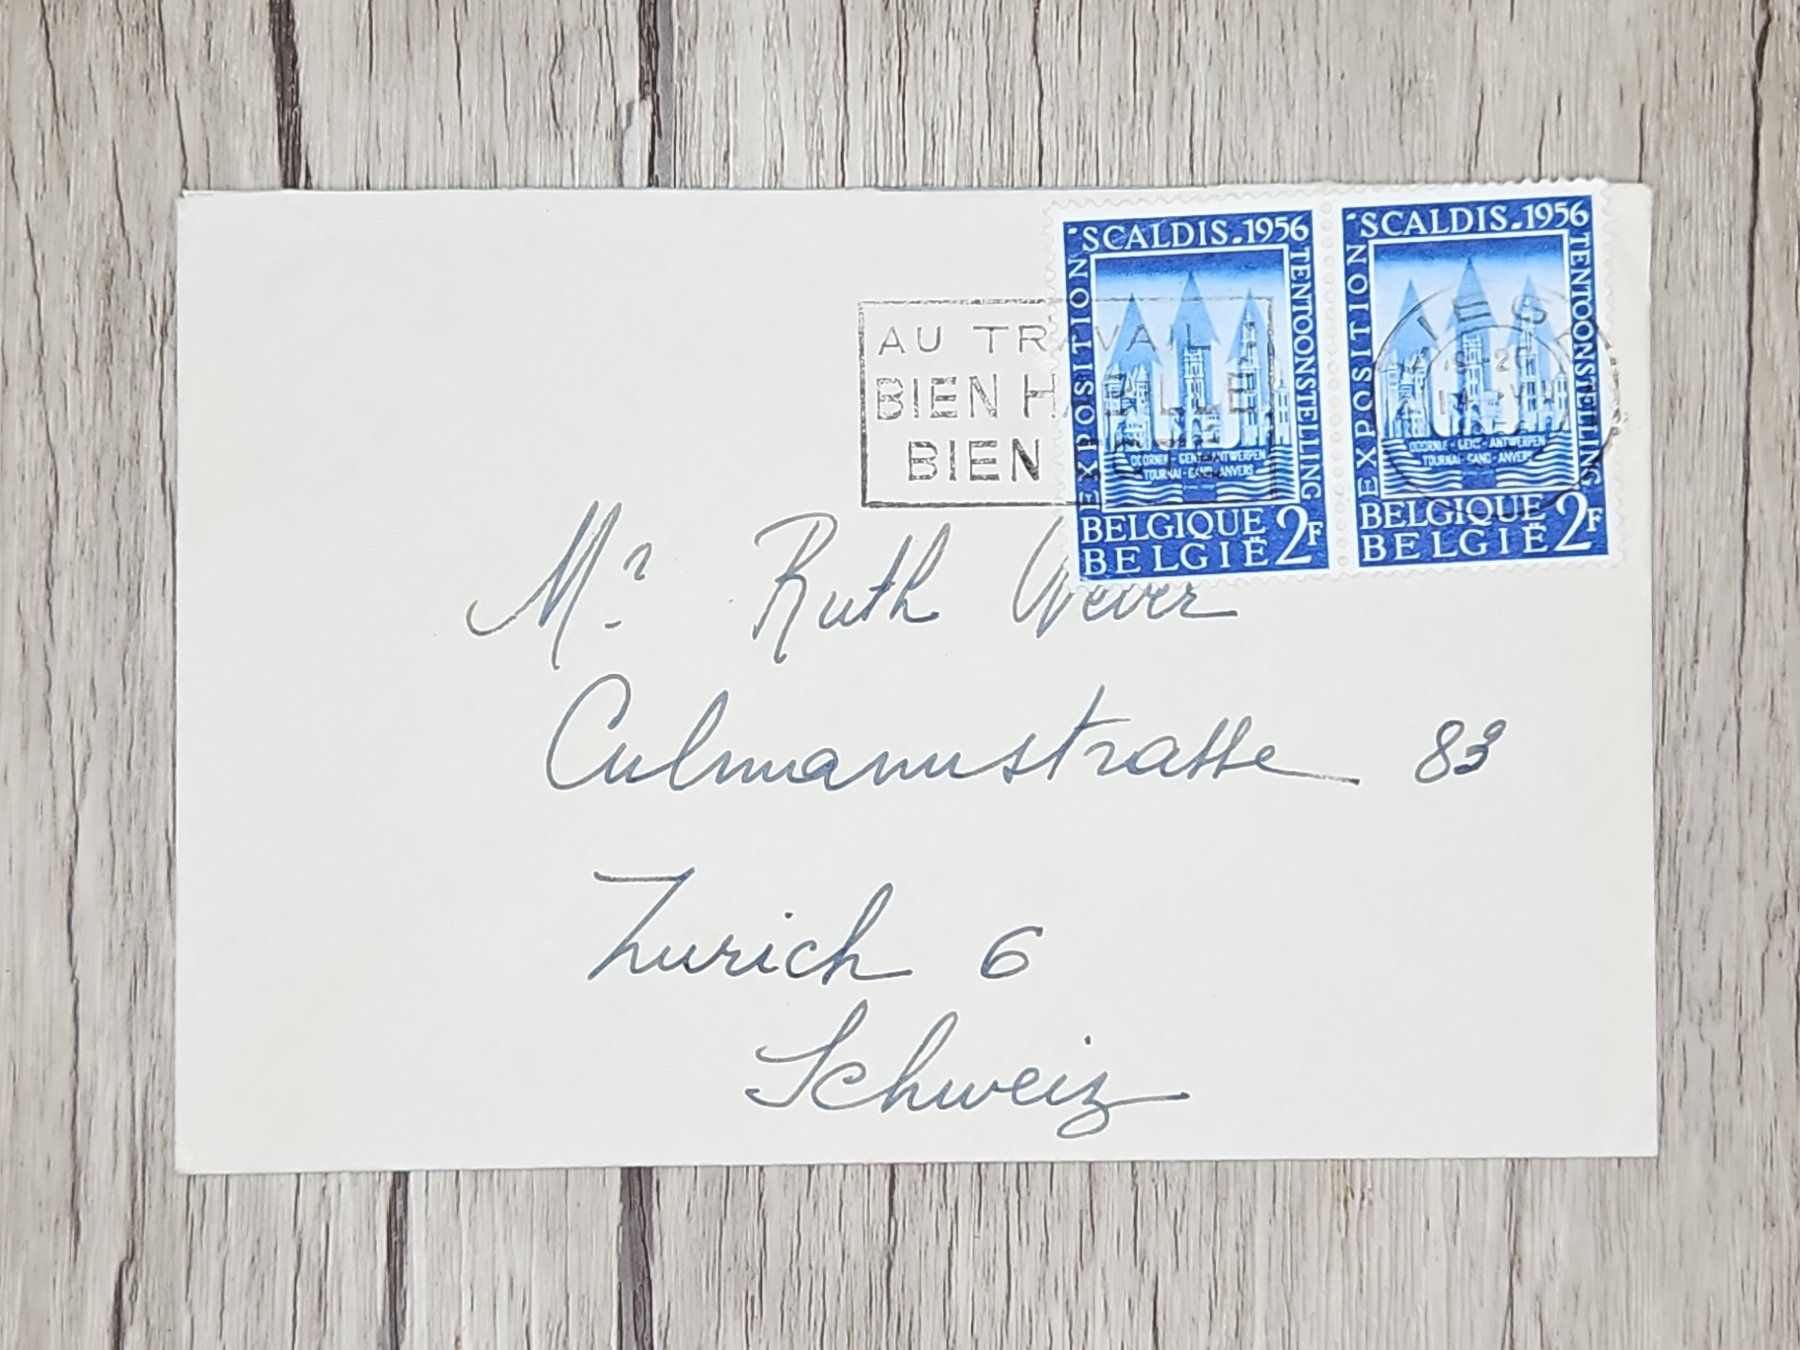 SCALDIS.1956
EXPOSITION
TENTOONSTELLING
DOORNIK - GENT - ANTWERPEN
TOURNAI - GAND - ANVERS
BELGIQUE
BELGIË 2F
SCALDIS.1956
EXPOSITION
TENTOONSTELLING
DOORNIK - GENT - ANTWERPEN
TOURNAI - GAND - ANVERS
BELGIQUE
BELGIË 2F
AU TRAVAIL
BIEN HABILLE
BIEN
Mr Ruth Wever
Culmannstrasse 83
Zurich 6
Schweiz